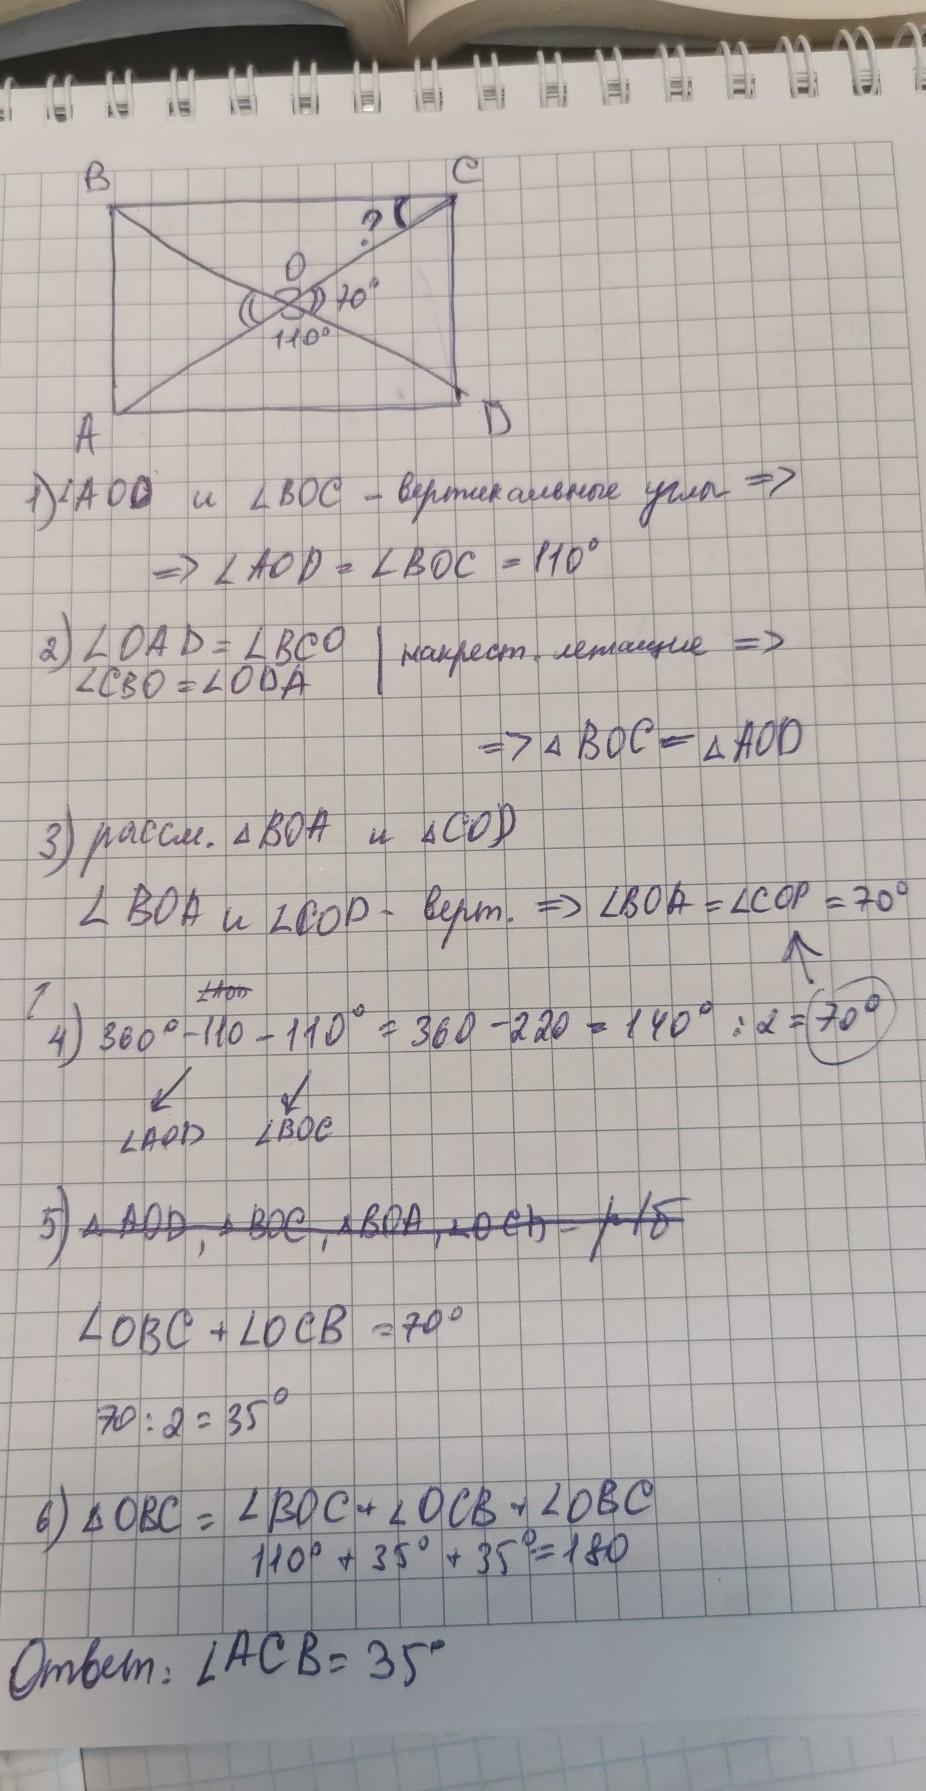 B
C
?
O
70°
110°
A
D
1) ∠AOD и ∠BOC - вертикальные углы =>
=> ∠AOD = ∠BOC = 110°
2) ∠OAD = ∠BCO | накрест. лежащие =>
∠CBO = ∠ODA
=> △BOC = △AOD
3) рассм. △BOA и △COD
∠BOA и ∠COD - верт. => ∠BOA = ∠COD = 70°
∠AOD
4) 360° - 110 - 110° = 360 - 220 = 140° : 2 = 70°
∠AOD ∠BOC
5) △AOD, △BOC, △BOA, ∠OCD - р/б
∠OBC + ∠OCB = 70°
70 : 2 = 35°
6) △OBC = ∠BOC + ∠OCB + ∠OBC
110° + 35° + 35° = 180
Ответ: ∠ACB = 35°